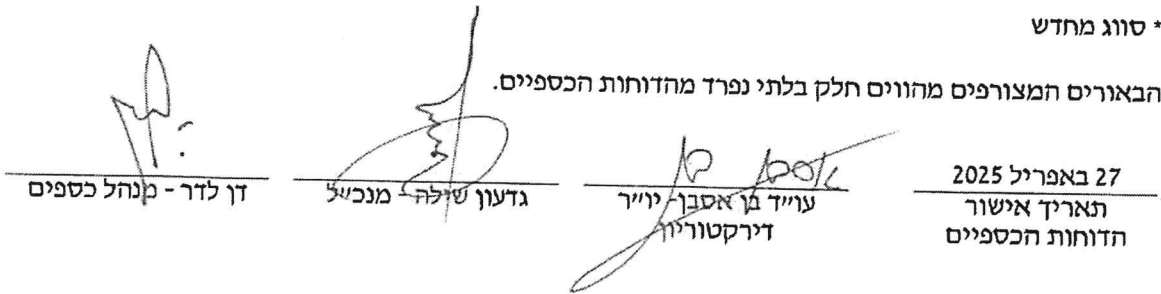 * סווג מחדש
הבאורים המצורפים מהווים חלק בלתי נפרד מהדוחות הכספיים.
27 באפריל 2025
תאריך אישור
הדוחות הכספיים
עו״ד בן אסבן- יו״ר
דירקטוריון
גדעון שילה - מנכ״ל
דן לדר - מנהל כספים